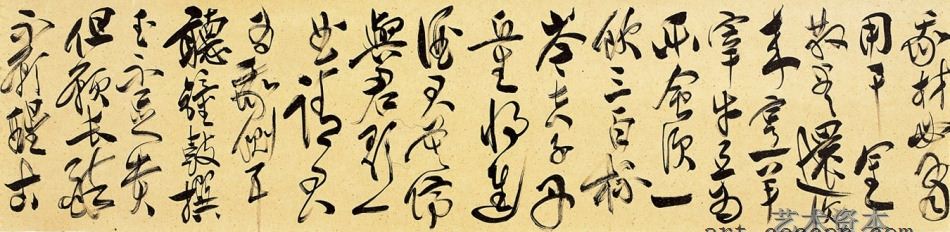 我材必有
用千金
散盡還復
來烹羊
宰牛且為
樂會須一
飲三百杯
岑夫子丹
丘生將進
酒君莫停
與君歌一
曲請君
為我側耳
聽鐘鼓撰
玉不足貴
但願長醉
不願醒古
艺术资本